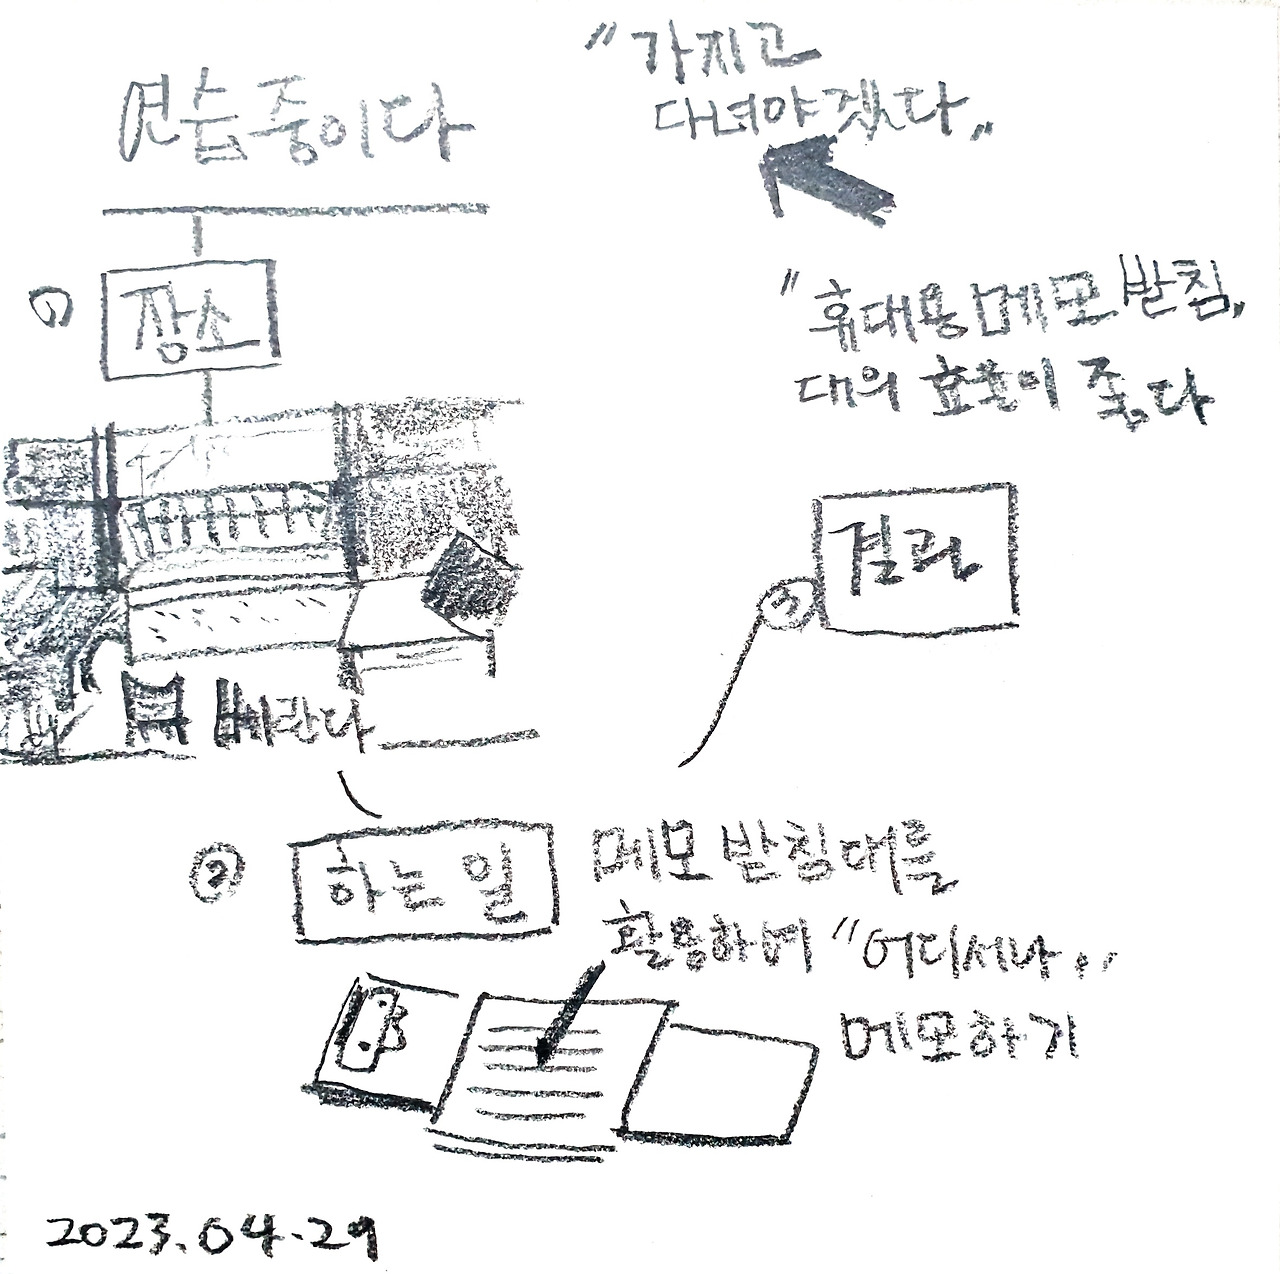 연습중이다
① 장소
베란다
② 하는 일
메모 받침대를
활용하여 "어디서나"
메모하기
③ 결과
"휴대용 메모 받침"
대의 효율이 좋다
"가지고
다녀야겠다"
2023.04.29